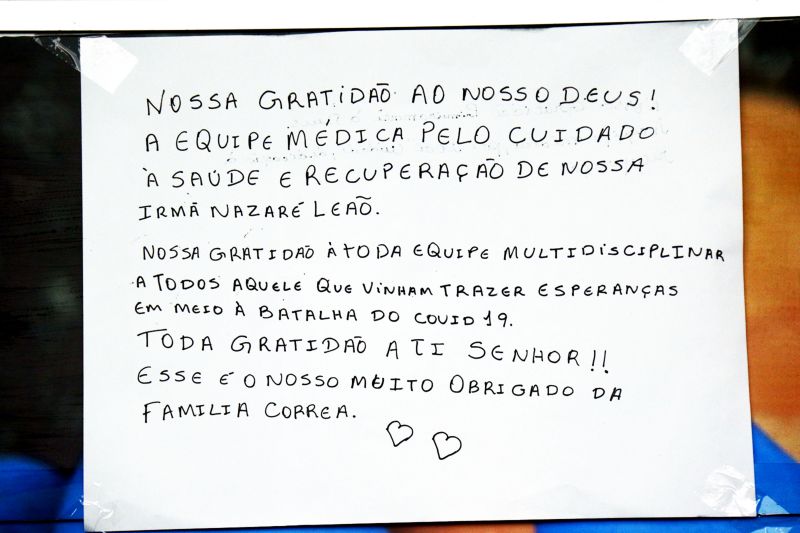 NOSSA GRATIDÃO AO NOSSO DEUS!
A EQUIPE MÉDICA PELO CUIDADO
À SAÚDE E RECUPERAÇÃO DE NOSSA
IRMÃ NAZARÉ LEÃO.
NOSSA GRATIDÃO À TODA EQUIPE MULTIDISCIPLINAR
A TODOS AQUELE QUE VINHAM TRAZER ESPERANÇAS
EM MEIO À BATALHA DO COVID 19.
TODA GRATIDÃO A TI SENHOR!!
ESSE É O NOSSO MUITO OBRIGADO DA
FAMILIA CORREA.